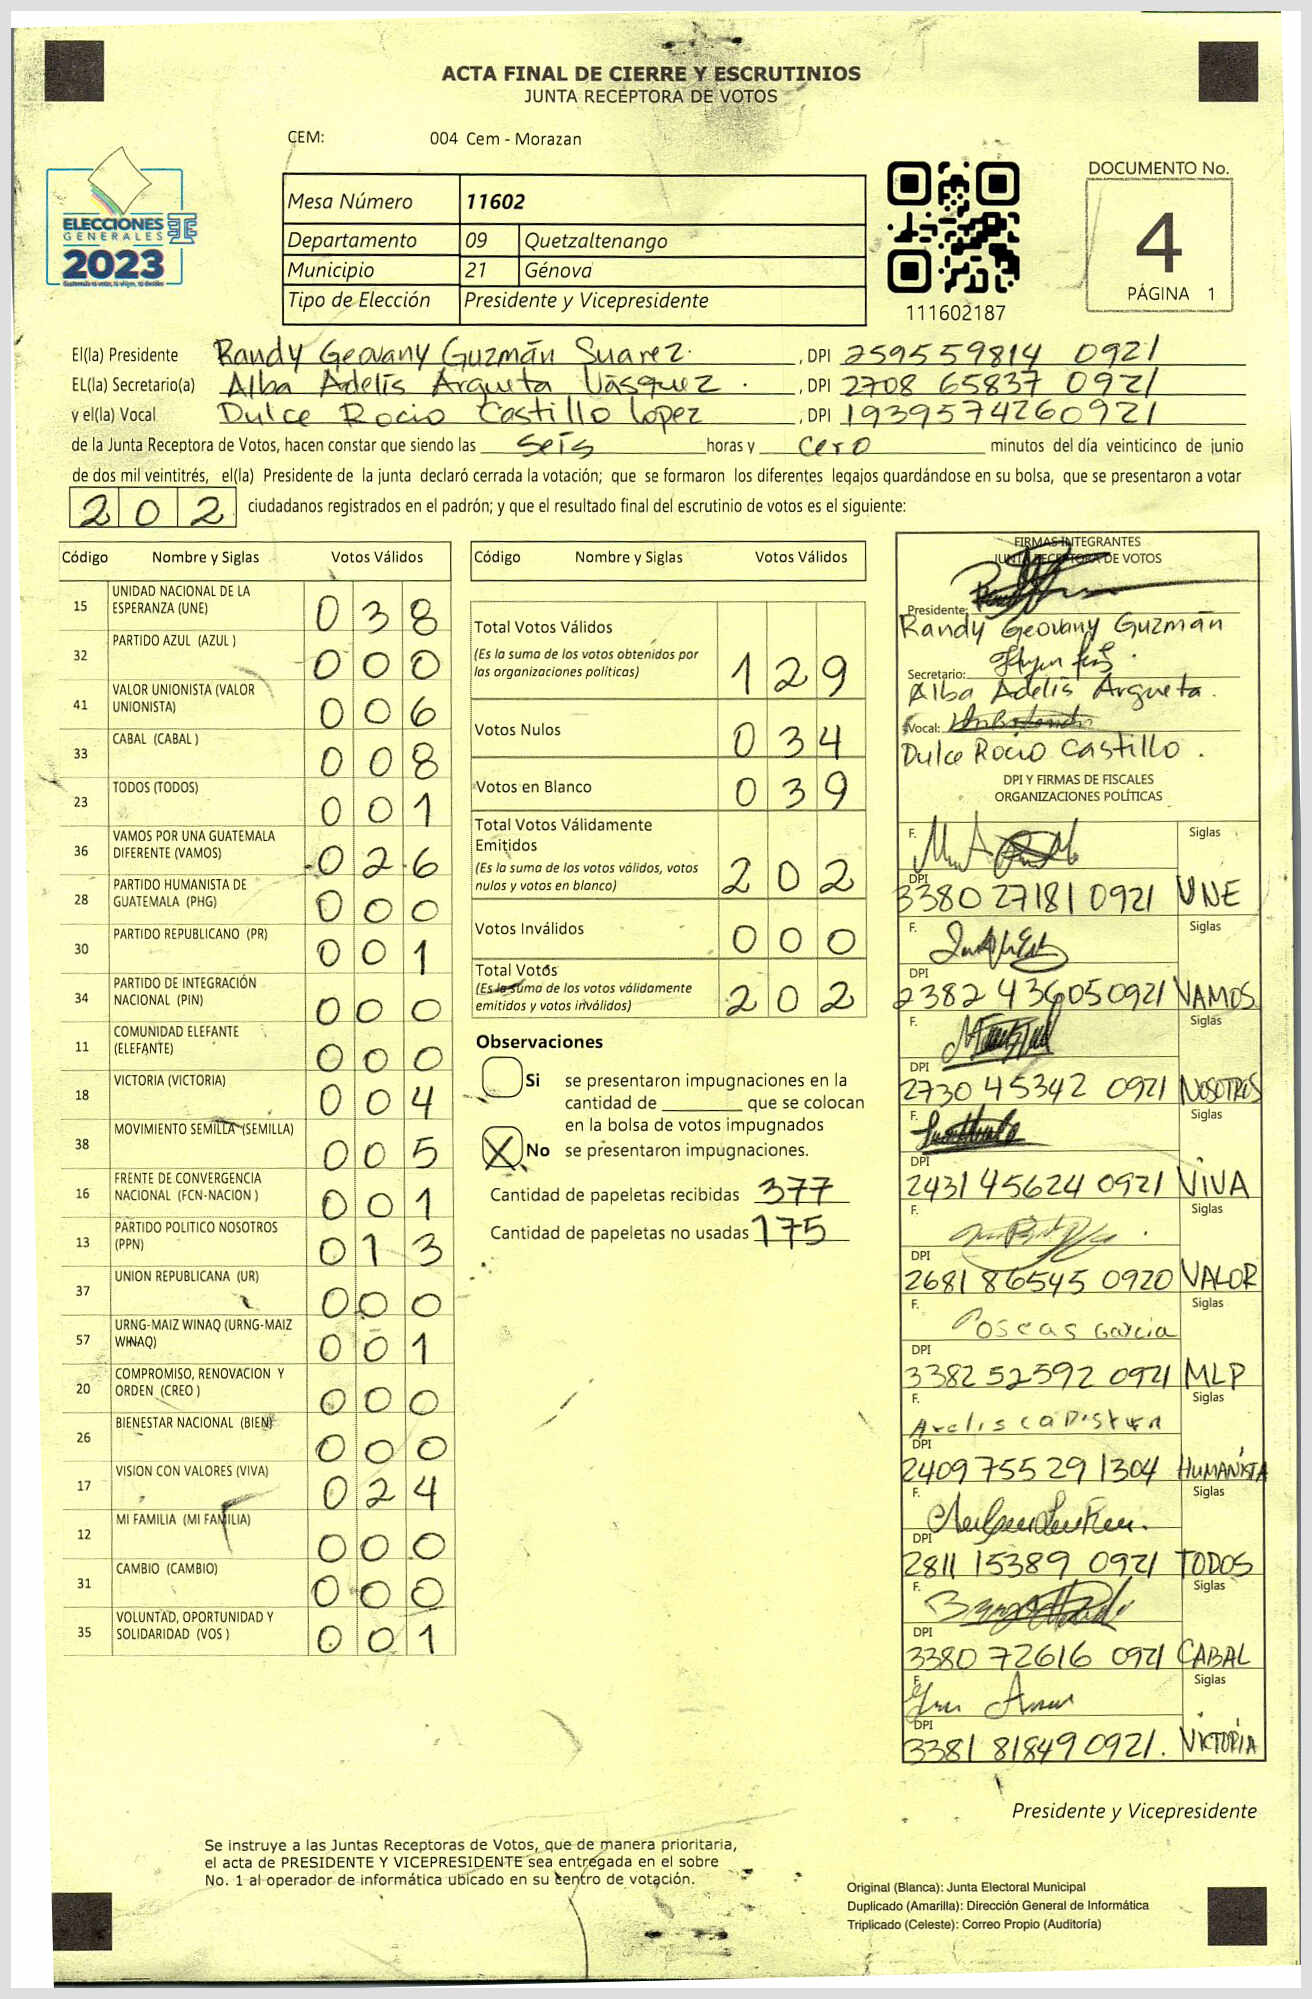 ACTA FINAL DE CIERRE Y ESCRUTINIOS
JUNTA RECEPTORA DE VOTOS
CEM: 004 Cem - Morazan
ELECCIONES
GENERALES
2023
Mesa Número 11602
Departamento 09 Quetzaltenango
Municipio 21 Génova
Tipo de Elección Presidente y Vicepresidente
111602187
DOCUMENTO No.
4
PÁGINA 1
El(la) Presidente Randy Geovany Guzmán Suarez. , DPI 259559814 0921
EL(la) Secretario(a) Alba Adelís Argueta Vásquez . , DPI 2708 65837 0921
y el(la) Vocal Dulce Rocio Castillo Lopez , DPI 1939574260921
de la Junta Receptora de Votos, hacen constar que siendo las seis horas y cero minutos del día veinticinco de junio
de dos mil veintitrés, el(la) Presidente de la junta declaró cerrada la votación; que se formaron los diferentes legajos guardándose en su bolsa, que se presentaron a votar
202 ciudadanos registrados en el padrón; y que el resultado final del escrutinio de votos es el siguiente:
Código Nombre y Siglas Votos Válidos
15 UNIDAD NACIONAL DE LA ESPERANZA (UNE) 038
32 PARTIDO AZUL (AZUL ) 000
41 VALOR UNIONISTA (VALOR UNIONISTA) 006
33 CABAL (CABAL ) 008
23 TODOS (TODOS) 001
36 VAMOS POR UNA GUATEMALA DIFERENTE (VAMOS) 026
28 PARTIDO HUMANISTA DE GUATEMALA (PHG) 000
30 PARTIDO REPUBLICANO (PR) 001
34 PARTIDO DE INTEGRACIÓN NACIONAL (PIN) 000
11 COMUNIDAD ELEFANTE (ELEFANTE) 000
18 VICTORIA (VICTORIA) 004
38 MOVIMIENTO SEMILLA (SEMILLA) 005
16 FRENTE DE CONVERGENCIA NACIONAL (FCN-NACION ) 001
13 PARTIDO POLITICO NOSOTROS (PPN) 013
37 UNION REPUBLICANA (UR) 000
57 URNG-MAIZ WINAQ (URNG-MAIZ WINAQ) 001
20 COMPROMISO, RENOVACION Y ORDEN (CREO ) 000
26 BIENESTAR NACIONAL (BIEN) 000
17 VISION CON VALORES (VIVA) 024
12 MI FAMILIA (MI FAMILIA) 000
31 CAMBIO (CAMBIO) 000
35 VOLUNTAD, OPORTUNIDAD Y SOLIDARIDAD (VOS ) 001
Código Nombre y Siglas Votos Válidos
Total Votos Válidos
(Es la suma de los votos obtenidos por
las organizaciones políticas) 129
Votos Nulos 034
Votos en Blanco 039
Total Votos Válidamente
Emitidos
(Es la suma de los votos válidos, votos
nulos y votos en blanco) 202
Votos Inválidos 000
Total Votos
(Es la suma de los votos válidamente
emitidos y votos inválidos) 202
Observaciones
Si se presentaron impugnaciones en la
cantidad de ________ que se colocan
en la bolsa de votos impugnados
X No se presentaron impugnaciones.
Cantidad de papeletas recibidas 377
Cantidad de papeletas no usadas 175
FIRMAS INTEGRANTES
JUNTA RECEPTORA DE VOTOS
Presidente:
Randy Geovany Guzmán
Secretario:
Alba Adelis Argueta.
Vocal:
Dulce Rocio Castillo .
DPI Y FIRMAS DE FISCALES
ORGANIZACIONES POLÍTICAS
F. Siglas
DPI
3380 27181 0921 UNE
F. Siglas
DPI
2382 43605 0921 VAMOS
F. Siglas
DPI
2730 45342 0921 NOSOTROS
F. Siglas
DPI
2431 45624 0921 VIVA
F. Siglas
DPI
2681 86545 0920 VALOR
F. Garcia Siglas
DPI
3382 52592 0921 MLP
F. Siglas
DPI
2409 755 29 1304 HUMANISTA
F. Siglas
DPI
2811 15389 0921 TODOS
F. Siglas
DPI
3380 72616 0921 CABAL
F. Siglas
DPI
3381 81849 0921. VICTORIA
Presidente y Vicepresidente
Se instruye a las Juntas Receptoras de Votos, que de manera prioritaria,
el acta de PRESIDENTE Y VICEPRESIDENTE sea entregada en el sobre
No. 1 al operador de informática ubicado en su centro de votación.
Original (Blanca): Junta Electoral Municipal
Duplicado (Amarilla): Dirección General de Informática
Triplicado (Celeste): Correo Propio (Auditoría)